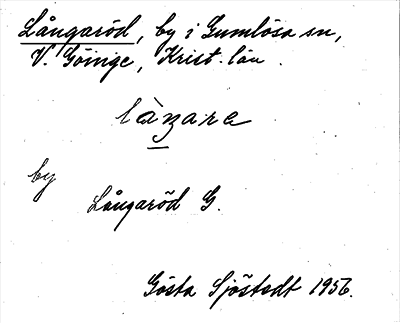 Långaröd, by i Gumlösa sn,
V. Göinge, Krist. län.
làŋare
by
Långaröd G.
Gösta Sjöstedt 1956.